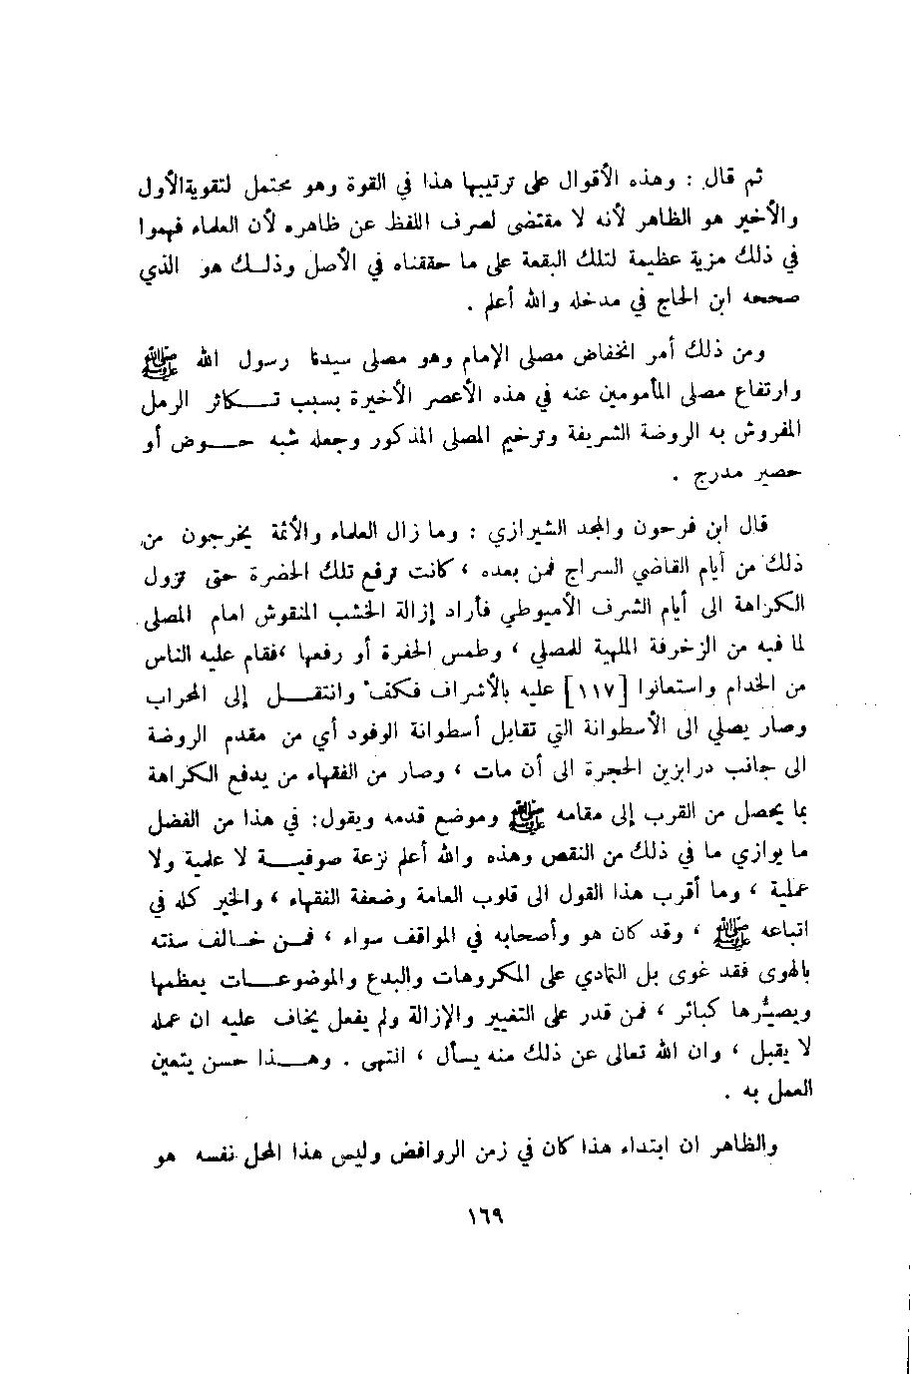 ثم قال : وهذه الأقوال على ترتيبها هذا في القوة وهو محتمل لتقوية الأول
والأخير هو الظاهر لأنه لا مقتضى لصرف اللفظ عن ظاهره لأن العلماء فهموا
في ذلك مزية عظيمة لتلك البقعة على ما حققناه في الأصل وذلك هو الذي
صححه ابن الحاج في مدخله والله أعلم .
ومن ذلك أمر انخفاض مصلى الإمام وهو مصلى سيدنا رسول الله ﷺ
وارتفاع مصلى المأمومين عنه في هذه الأعصر الأخيرة بسبب تكاثر الرمل
المفروش به الروضة الشريفة وترخيم المصلى المذكور وجعله شبه حوض أو
حصير مدرج .
قال ابن فرحون والمجد الشيرازي : وما زال العلماء والأئمة يخرجون من
ذلك من أيام القاضي السراج فمن بعده ، كانت ترفع تلك الحضرة حتى تزول
الكراهة الى أيام الشرف الأميوطي فأراد إزالة الخشب المنقوش امام المصلى
لما فيه من الزخرفة الملهية للمصلي ، وطمس الحفرة أو رفعها ،فقام عليه الناس
من الخدام واستعانوا [١١٧] عليه بالأشراف فكف وانتقل إلى المحراب
وصار يصلي الى الأسطوانة التي تقابل أسطوانة الوفود أي من مقدم الروضة
الى جانب درابزين الحجرة الى أن مات ، وصار من الفقهاء من يدفع الكراهة
بما يحصل من القرب إلى مقامه ﷺ وموضع قدمه ويقول: في هذا من الفضل
ما يوازي ما في ذلك من النقص وهذه والله أعلم نزعة صوفية لا علمية ولا
عملية ، وما أقرب هذا القول الى قلوب العامة وضعفة الفقهاء ، والخير كله في
اتباعه ﷺ ، وقد كان هو وأصحابه في المواقف سواء ، فمن خالف سنته
بالهوى فقد غوى بل التمادي على المكروهات والبدع والموضوعات يعظمها
ويصيُّرها كبائر ، فمن قدر على التغيير والإزالة ولم يفعل يخاف عليه ان عمله
لا يقبل ، وان الله تعالى عن ذلك منه يسأل ، انتهى . وهذا حسن يتعين
العمل به .
والظاهر ان ابتداء هذا كان في زمن الروافض وليس هذا المحل نفسه هو
١٦٩